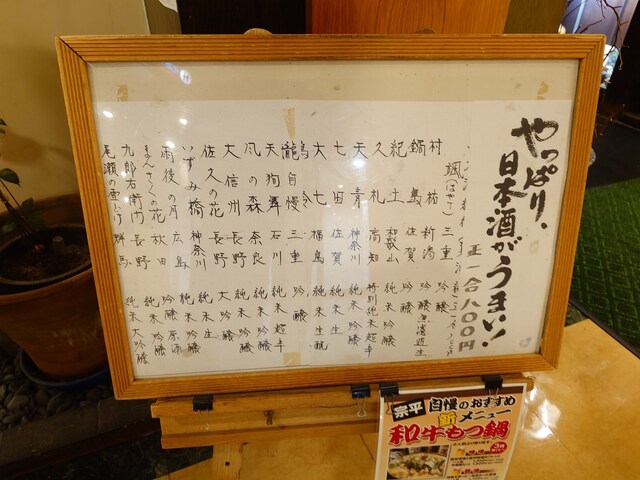 やっぱり、
日本酒がうまい!
正一合八〇〇円
颯(はやて) 三重 吟醸
村祐 新潟 吟醸 無濾過生
鍋島 佐賀 吟醸
紀土 和歌山 純米吟醸
久礼 高知 特別純米 超辛
天青 神奈川 純米吟醸
七田 佐賀 純米
大七 福島 純米生酛
三重 吟醸
天狗舞 石川 純米 超辛
風の森 奈良 純米
大信州 長野 純米吟醸
佐久の花 長野 大吟醸
いずみ橋 神奈川 純米 生
雨後の月 広島 純米吟醸
まんさくの花 秋田 吟醸 原酒
九郎右衛門 長野 純米吟醸
尾瀬の雪どけ 群馬 純米大吟醸
宗平 自慢のおすすめ
新メニュー
和牛もつ鍋